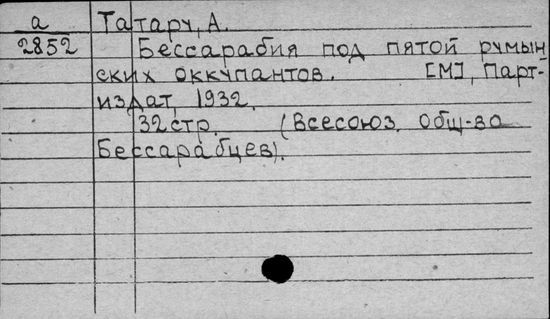 а Татару, А.
2852 Бессарабия под пятой румын
ских оккупантов. [М], Парт-
издат, 1932.
32 стр. (Всесоюз. общ-во
Бессарабцев).